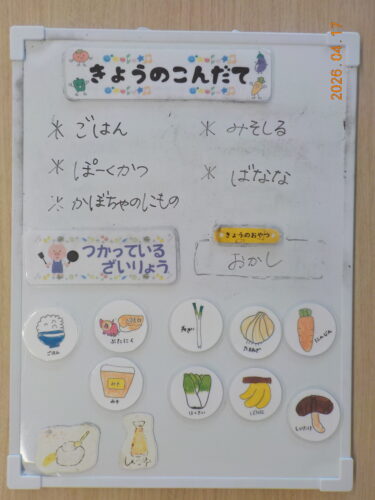 2026.04.17
きょうのこんだて
* ごはん
* みそしる
* ぽーくかつ
* ばなな
* かぼちゃのにもの
つかっている
ざいりょう
きょうのおやつ
おかし
ごはん
ぶたにく
ねぎ
たまねぎ
にんじん
みそ
みそ
はくさい
ばなな
しいたけ